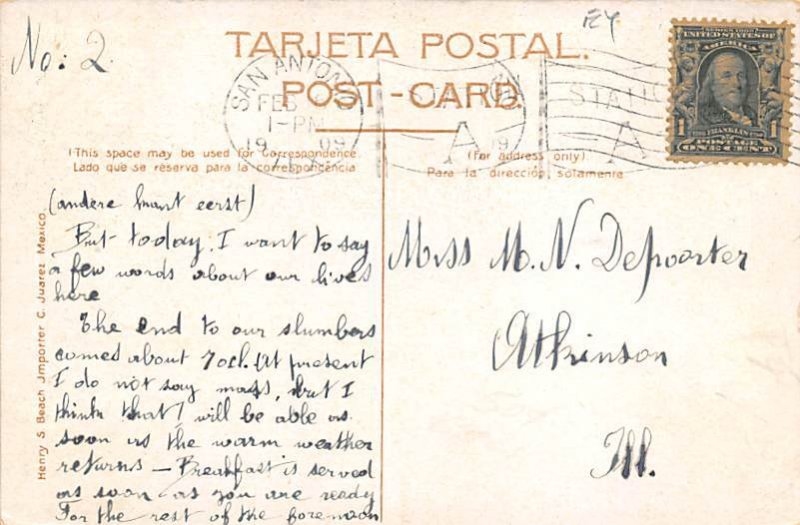 No: 2
EY
TARJETA POSTAL.
POST-CARD.
SAN ANTONIO
FEB
1-PM
19 09
STATIO
A
9
STATIO
A
SERIES 1902
UNITED STATES OF
AMERICA
1 FRANKLIN 1
POSTAGE
ONE CENT
This space may be used for Correspondence
Lado que se reserva para la correspondencia
(For address only)
Para la dirección solamente
Henry S Beach Jmporter C. Juarez Mexico
(andere kaart eerst)
But today I want to say
a few words about our lives
here
The end to our slumbers
comes about 7 ocl. At present
I do not say mass, but I
think that I will be able as
soon as the warm weather
returns — Breakfast is served
as soon as you are ready
For the rest of the forenoon
Miss M. N. Depoorter
Atkinson
Ill.